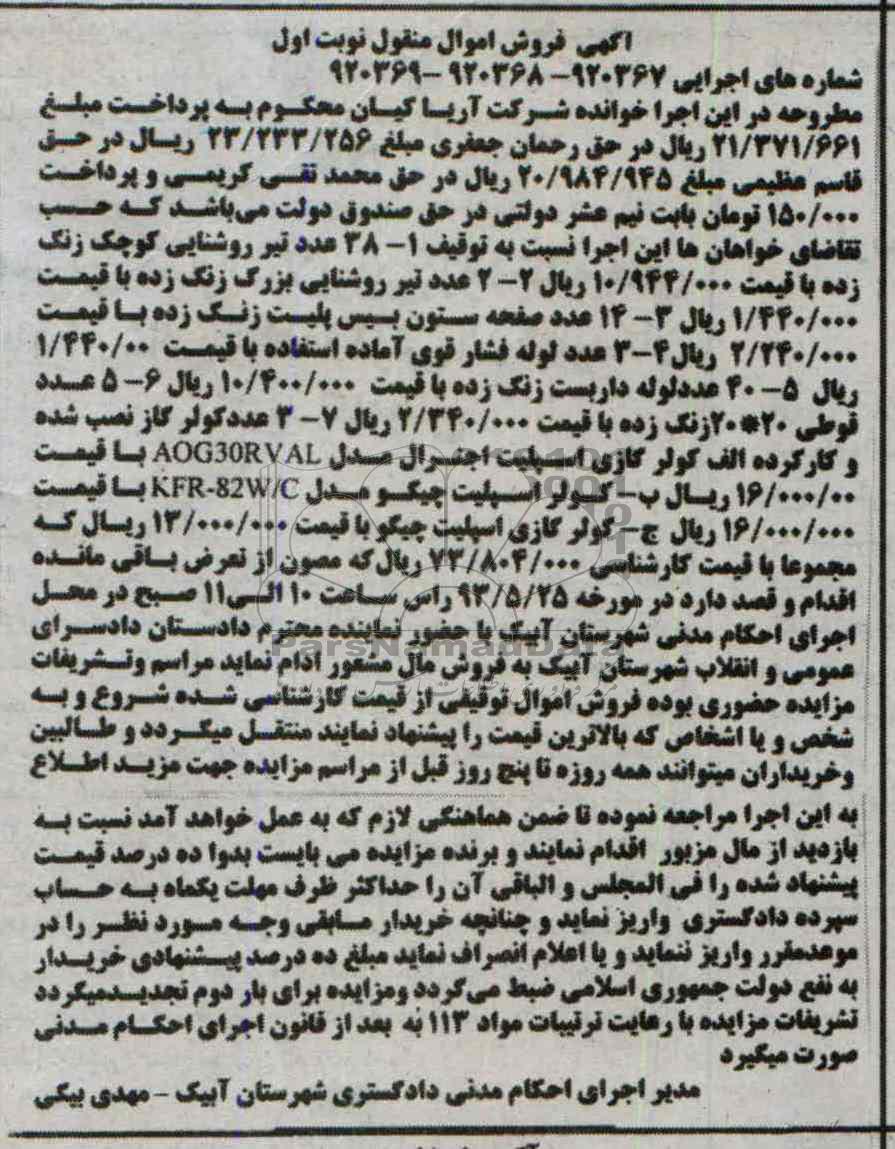 اگهی فروش اموال منقول نوبت اول
شماره های اجرایی ۹۲۰۳۶۷- ۹۲۰۳۶۸ -۹۲۰۳۶۹
مطروحه در این اجرا خوانده شرکت آریا کیان محکوم به پرداخت مبلغ
۲۱/۳۷۱/۶۶۱ ریال در حق رحمان جعفری مبلغ ۲۳/۲۳۳/۲۵۶ ریال در حق
قاسم عظیمی مبلغ ۲۰/۹۸۴/۹۴۵ ریال در حق محمد تقی کریمی و پرداخت
۱۵۰/۰۰۰ تومان بابت نیم عشر دولتی در حق صندوق دولت می‌باشد که حسب
تقاضای خواهان ها این اجرا نسبت به توقیف ۱- ۳۸ عدد تیر روشنایی کوچک زنگ
زده با قیمت ۱۰/۹۴۴/۰۰۰ ریال ۲- ۲ عدد تیر روشنایی بزرگ زنگ زده با قیمت
۱/۴۴۰/۰۰۰ ریال ۳- ۱۴ عدد صفحه ستون بیس پلیت زنگ زده با قیمت
۲/۲۴۰/۰۰۰ ریال ۴-۳ عدد لوله فشار قوی آماده استفاده با قیمت ۱/۴۴۰/۰۰
ریال ۵- ۴۰ عددلوله داربست زنگ زده با قیمت ۱۰/۴۰۰/۰۰۰ ریال ۶- ۵ عدد
قوطی ۲۰*۲۰زنگ زده با قیمت ۲/۳۴۰/۰۰۰ ریال ۷- ۳ عددکولر گاز نصب شده
و کارکرده الف کولر گازی اسپلیت اجنرال مدل AOG30RVAL با قیمت
۱۶/۰۰۰/۰۰ ریال ب- کولر اسپلیت چیگو مدل KFR-82W/C با قیمت
۱۶/۰۰۰/۰۰۰ ریال ج- کولر گازی اسپلیت چیگو با قیمت ۱۳/۰۰۰/۰۰۰ ریال که
مجموعا با قیمت کارشناسی ۷۳/۸۰۴/۰۰۰ ریال که مصون از تعرض باقی مانده
اقدام و قصد دارد در مورخه ۹۳/۵/۲۵ راس ساعت ۱۰ الی۱۱ صبح در محل
اجرای احکام مدنی شهرستان آبیک با حضور نماینده محترم دادستان دادسرای
عمومی و انقلاب شهرستان آبیک به فروش مال مشعور ادام نماید مراسم وتشریفات
مزایده حضوری بوده فروش اموال توقیفی از قیمت کارشناسی شده شروع و به
شخص و یا اشخاص که بالاترین قیمت را پیشنهاد نمایند منتقل میگردد و طالبین
وخریداران میتوانند همه روزه تا پنج روز قبل از مراسم مزایده جهت مزید اطلاع
به این اجرا مراجعه نموده تا ضمن هماهنگی لازم که به عمل خواهد آمد نسبت به
بازدید از مال مزبور اقدام نمایند و برنده مزایده می بایست بدوا ده درصد قیمت
پیشنهاد شده را فی المجلس و الباقی آن را حداکثر ظرف مهلت یکماه به حساب
سپرده دادگستری واریز نماید و چنانچه خریدار مابقی وجه مورد نظر را در
موعدمقرر واریز ننماید و یا اعلام انصراف نماید مبلغ ده درصد پیشنهادی خریدار
به نفع دولت جمهوری اسلامی ضبط می‌گردد ومزایده برای بار دوم تجدیدمیگردد
تشریفات مزایده با رعایت ترتیبات مواد ۱۱۳ به بعد از قانون اجرای احکام مدنی
صورت میگیرد
مدیر اجرای احکام مدنی دادگستری شهرستان آبیک - مهدی بیکی
ParsNamadData